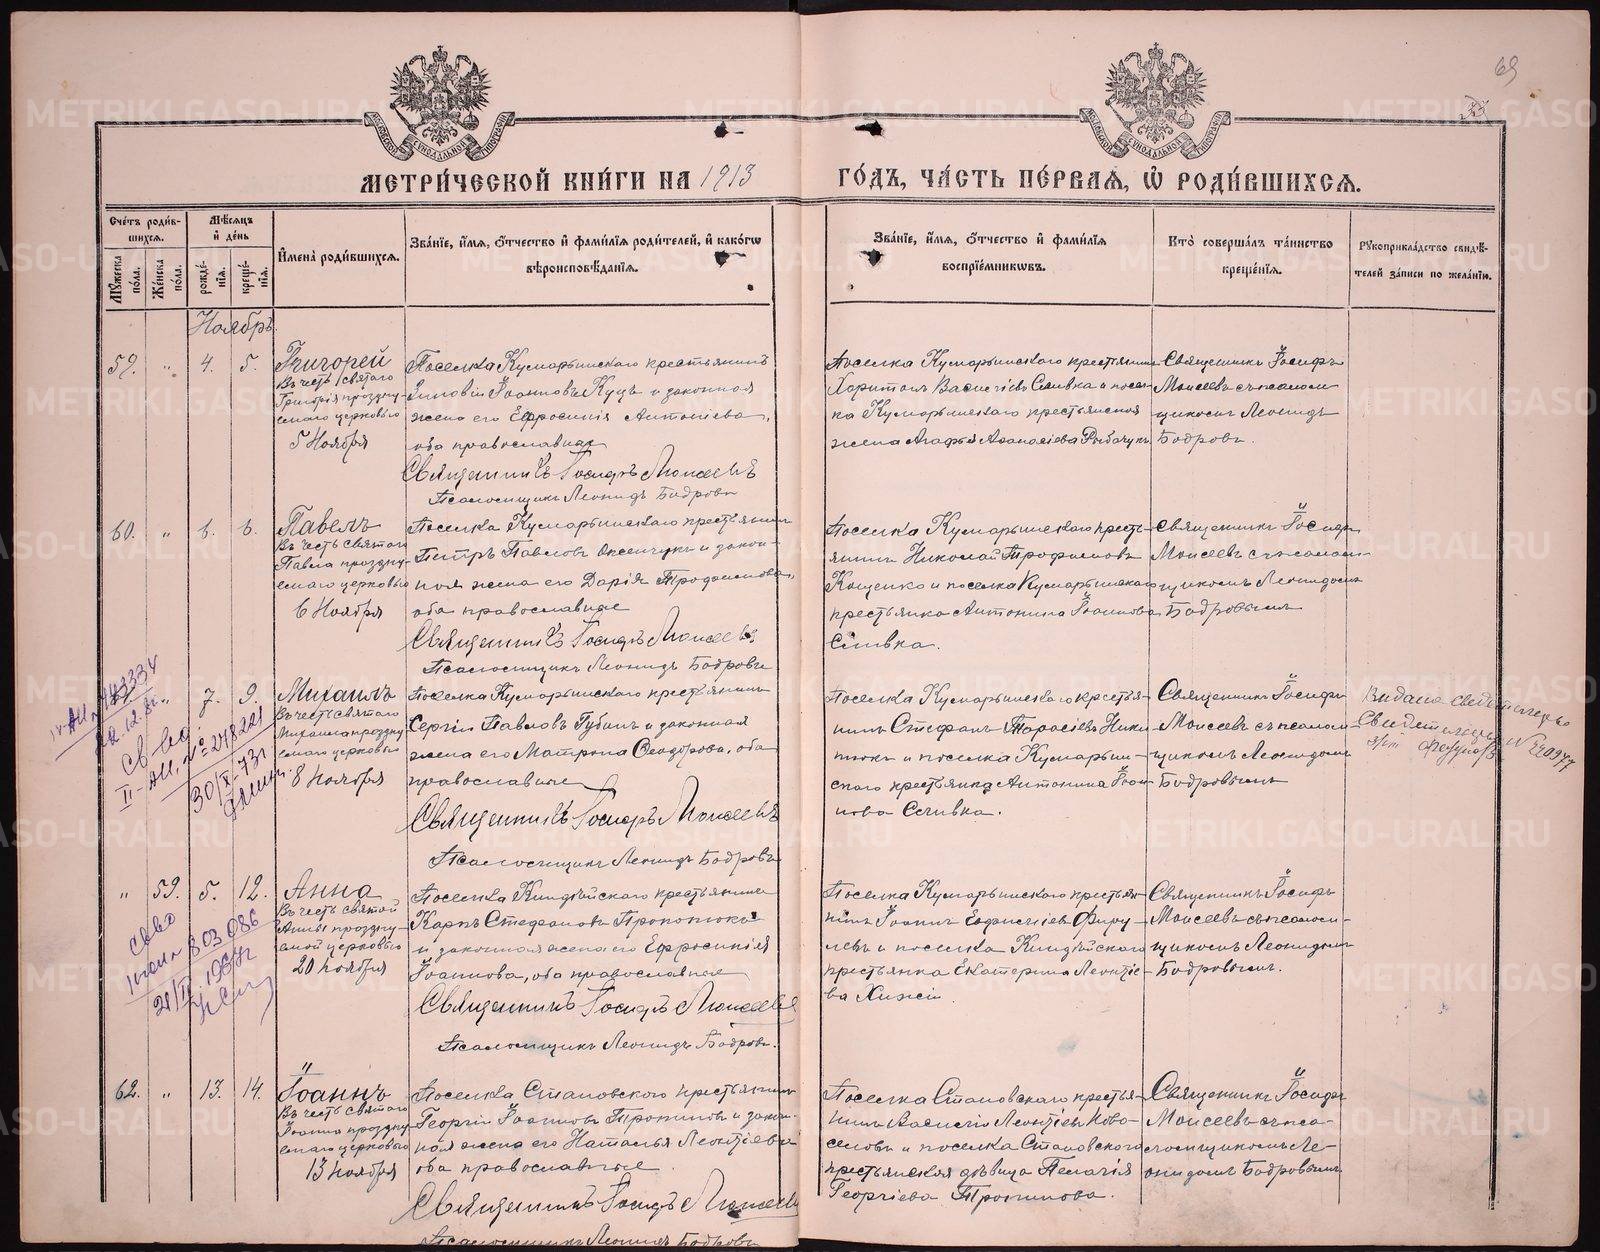 69
МЕТРИ́ЧЕСКОЙ КНИ́ГИ НА 1913 ГО́ДЪ, ЧА́СТЬ ПЕ́РВАЯ, Ѽ РОДИ́ВШИХСЯ.
Сче́тъ роди́в-
шихся.
Му́жеска по́ла.
Же́нска по́ла.
Мѣ́сяцъ и де́нь
рожде́-
нія.
креще́-
нія.
И҆мена̀ роди́вшихся.
Зва́ніе, и҆́мя, ѻ҆́тчество и҆ фами́лія роди́телей, и҆ како́гѡ
вѣроисповѣ́данія.
Зва́ніе, и҆́мя, ѻ҆́тчество и҆ фами́лія
воспрїе́мникѡвъ.
Кто̀ соверша́лъ та́инство
креще́нія.
Рꙋкоприкла́дство свидѣ́-
телей за́писи по жела́нію.
Ноябрь
59. " 4. 5.
Григорій
Въ честь святаго
Григорія праздну-
емаго церковью
5 Ноября
Поселка Кумарьинскаго крестьянинъ
Зиновій Іоанновъ Куцъ и законная
жена его Ефросинія Антоніева,
оба православные
Священникъ Іосифъ Моисеевъ
Псаломщикъ Леонидъ Бодровъ
Поселка Кумарьинскаго крестьянинъ
Харитонъ Васильевъ Сливка и посел-
ка Кумарьинскаго крестьянская
жена Агафья Афанасіева Рыбачукъ
Священникъ Іосифъ
Моисеевъ съ псалом-
щикомъ Леонидъ
Бодровъ.
60. " 6. 6.
Павелъ
Въ честь святаго
Павла праздну-
емаго церковью
6 Ноября
Поселка Кумарьинскаго крестьянинъ
Петръ Павловъ Оксенчукъ и закон-
ная жена его Дарія Трофимова,
оба православные
Священникъ Іосифъ Моисеевъ
Псаломщикъ Леонидъ Бодровъ
Поселка Кумарьинскаго кресть-
янинъ Николай Трофимовъ
Кощенко и поселка Кумарьинскаго
крестьянка Антонина Іоаннова
Сливка.
Священникъ Іосифъ
Моисеевъ съ псалом-
щикомъ Леонидомъ
Бодровымъ
" 7. 9.
Михаилъ
Въ честь святаго
Михаила праздну-
емаго церковью
8 Ноября
Поселка Кумарьинскаго крестьянинъ
Сергій Павловъ Губинъ и законная
жена его Матрона Ѳеодорова, оба
православные
Священникъ Іосифъ Моисеевъ
Псаломщикъ Леонидъ Бодровъ
Поселка Кумарьинскаго крестья-
нинъ Стефанъ Тарасіевъ Ники-
тюкъ и поселка Кумарьин-
скаго крестьянка Антонина Іоан-
нова Сливка.
Священникъ Іосифъ
Моисеевъ съ псалом-
щикомъ Леонидомъ
Бодровымъ
№ 220977
22.12.82г.
II-АИ. № 248221
30/X-73г
" 59. 5. 12.
Анна
Въ честь святой
Анны праздну-
емой церковью
20 ноября
Поселка Киндѣйскаго крестьянинъ
Карпъ Стефановъ Прокопюкъ
и законная жена его Ефросинія
Іоаннова, оба православные
Священникъ Іосифъ Моисеевъ
Псаломщикъ Леонидъ Бодровъ.
Поселка Кумарьинскаго крестья-
нинъ Іоаннъ
и поселка Киндѣйскаго
крестьянка Екатерина Леонтіе-
ва
Священникъ Іосифъ
Моисеевъ съ псалом-
щикомъ Леонидомъ
Бодровымъ.
803086
62. " 13. 14.
Іоаннъ
Въ честь святаго
Іоанна праздну-
емаго церковью
13 Ноября
Поселка Становского крестьянинъ
Георгій Іоанновъ Тропинъ и закон-
ная жена его Наталья Леонтіева
оба православные.
Священникъ Іосифъ Моисеевъ
Псаломщикъ Леонидъ Бодровъ
Поселка Становскаго крестья-
нинъ Василій Леонтіевъ Ново-
селовъ и поселка Становского
крестьянская дѣвица Пелагія
Георгіева Тропинова.
Священникъ Іосифъ
Моисеевъ съ пса-
ломщикомъ Ле-
онидомъ Бодровымъ
METRIKI.GASO-URAL.RU